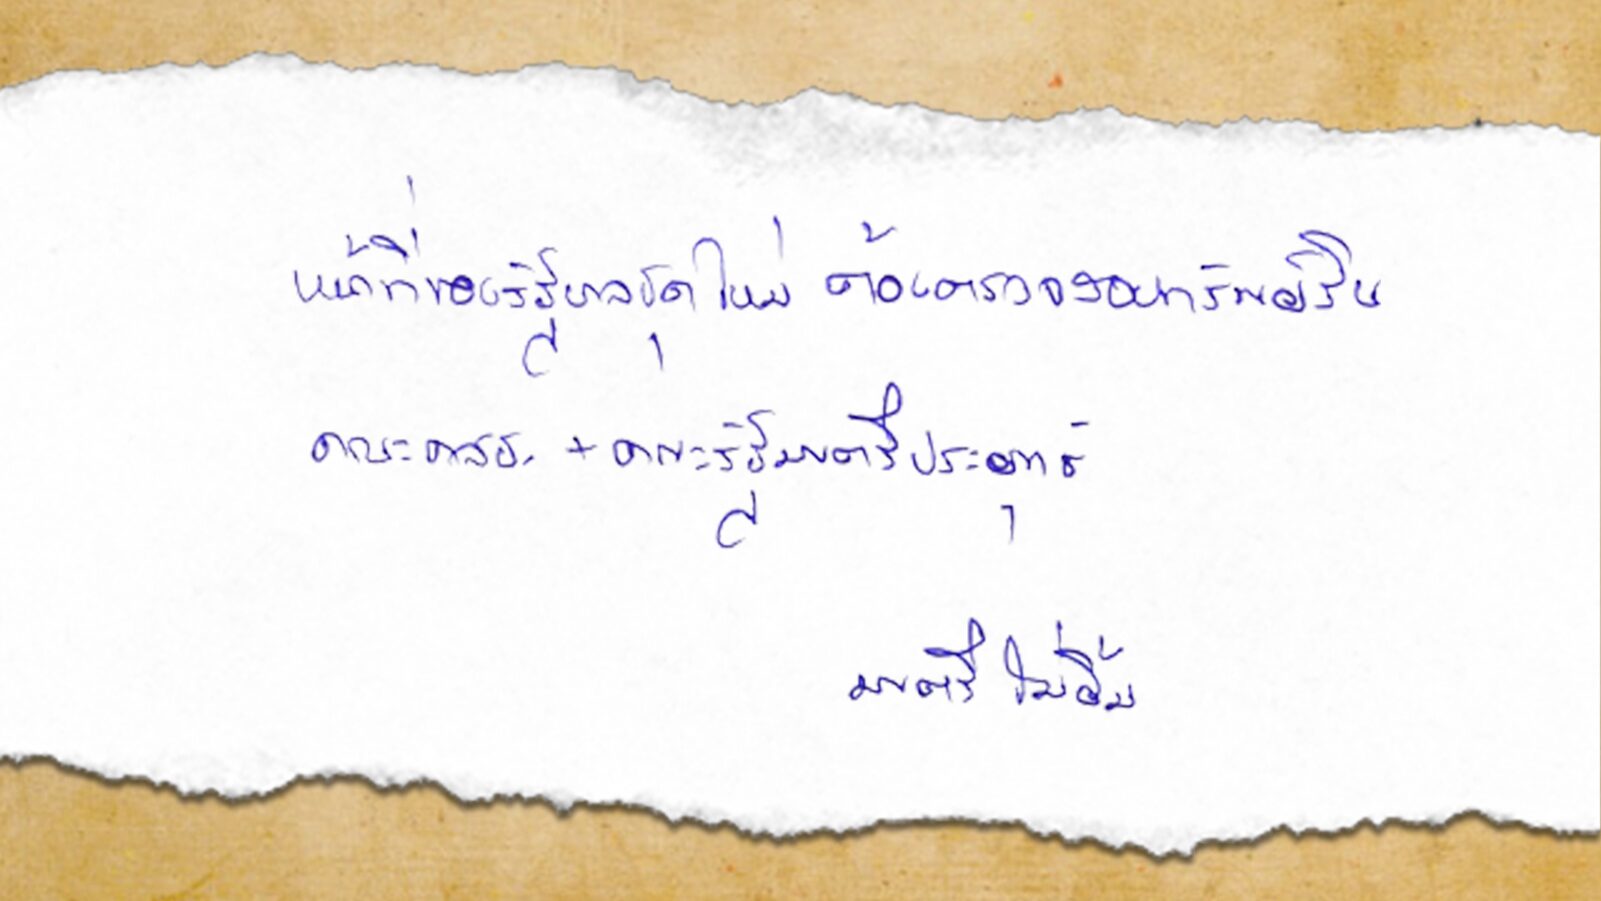 หน้าที่ของรัฐบาลชุดใหม่ ต้องตรวจสอบทรัพย์สิน
คณะคสช. + คณะรัฐมนตรีประยุทธ์
มนตรี ไม่อิ้ม